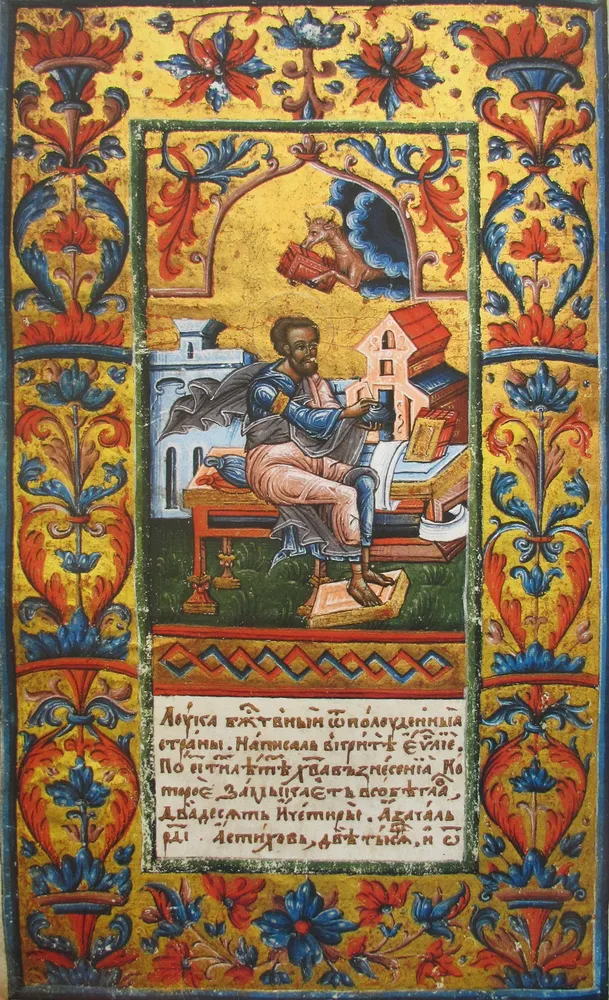 Лоука бжтвныи ѿ полоуденныѧ
страны. Написалъ ві҆грѣтѣ Єѵ҃лїе.
По еі҃ ти лѣтѣхъ х҃ва възнесенїѧ, Ко
торое Замыкаетъ в собѣ гла҃,
Двадесѧть И҆ четыры. А҆ зачалъ
рд҃і. А стиховъ, двѣ тысѧ, и ѿ